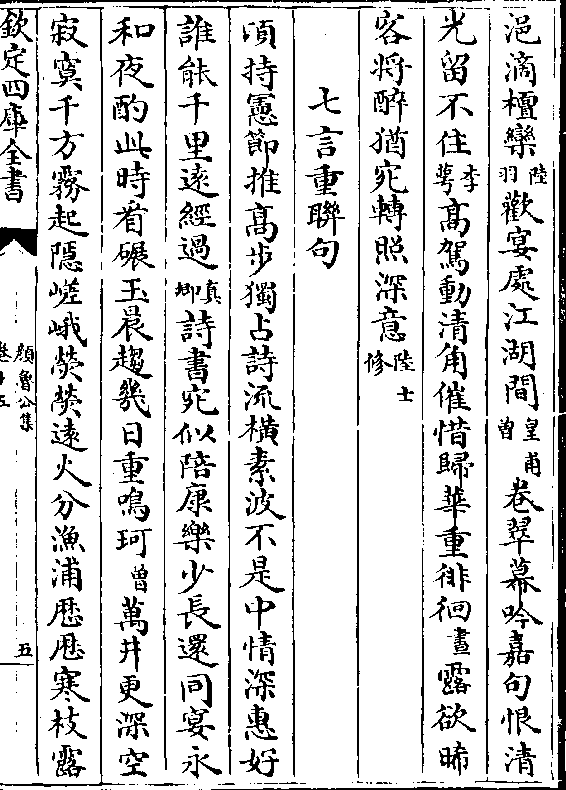 浥滴檀欒陸羽歡宴處江湖間皇甫曾卷翠幕吟嘉句恨清
光留不住李萼高駕動清角催惜歸華重徘徊晝露欲晞
客將醉猶宛轉照深意陸士修
七言重聯句
頃持憲節推高步獨占詩流橫素波不是中情深惠好
誰能千里遠經過真卿詩書宛似陪康樂少長還同宴永
和夜酌此時看碾玉晨趨幾日重鳴珂曾萬井更深空
寂寞千方霧起隱嵯峨熒熒遠火分漁浦歷歷寒枝露
欽定四庫全書
顏魯公集
卷十五
五